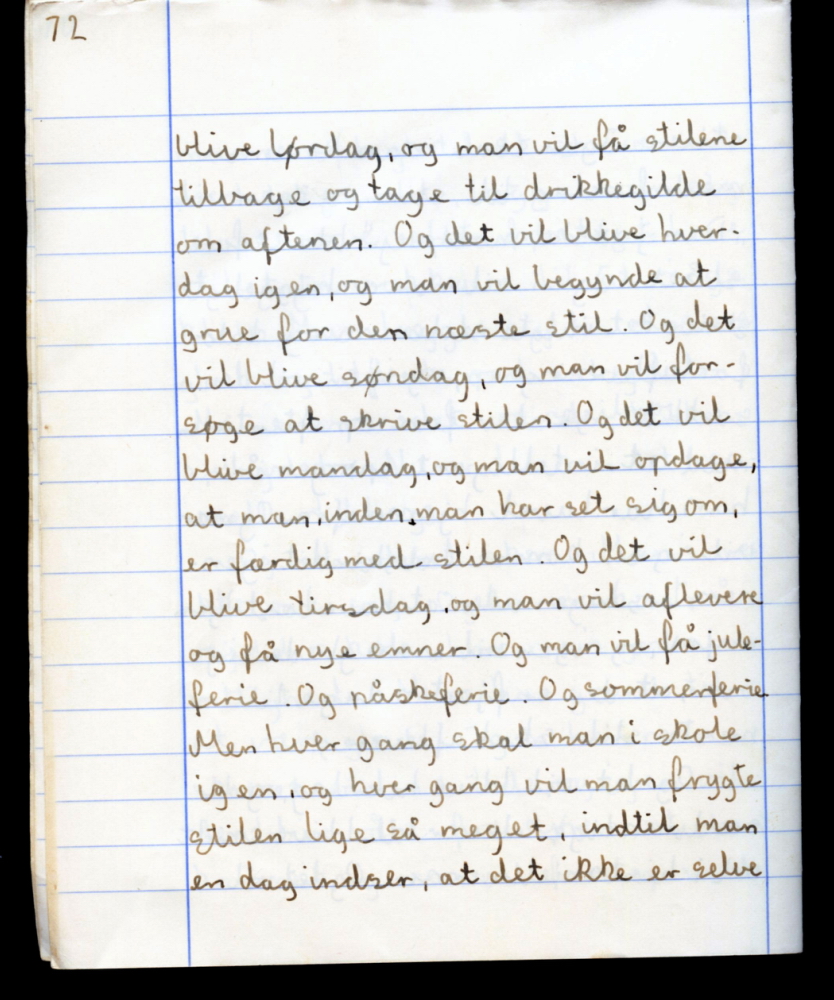 72
blive lørdag, og man vil få stilene
tilbage og tage til drikkegilde
om aftenen. Og det vil blive hver-
dag igen, og man vil begynde at
grue for den næste stil. Og det
vil blive søndag, og man vil for-
søge at skrive stilen. Og det vil
blive mandag, og man vil opdage,
at man, inden man har set sig om,
er færdig med stilen. Og det vil
blive tirsdag, og man vil aflevere
og få nye emner. Og man vil få jule-
ferie. Og påskeferie. Og sommerferie.
Men hver gang skal man i skole
igen, og hver gang vil man frygte
stilen lige så meget, indtil man
en dag indser, at det ikke er selve